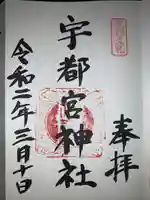 奉拝
宇都宮神社
令和二年三月十日